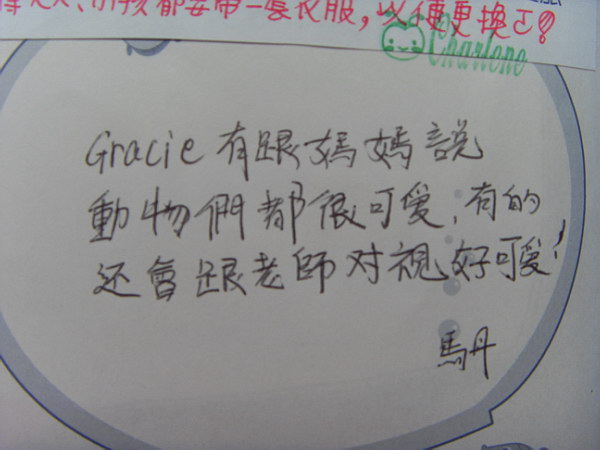 天人、小孩都要帶一套衣服，以便更換㊣！
Charlene
Gracie 有跟媽媽說
動物們都很可愛，有的
还會跟老師对視好可爱！
馬丹